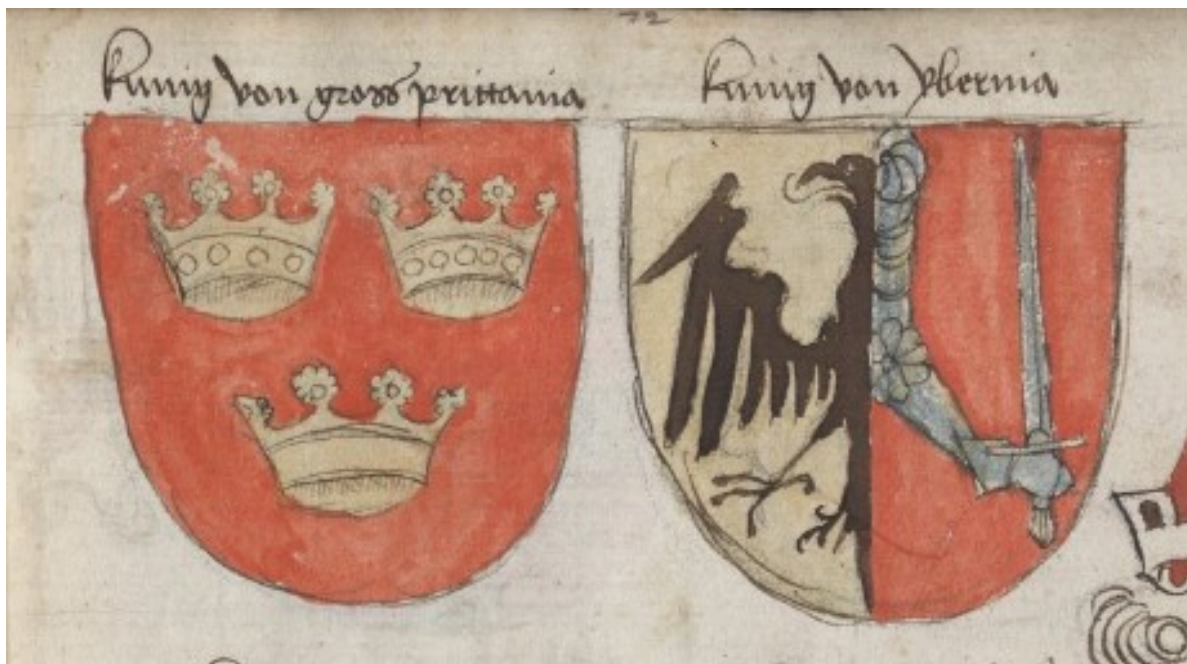 72
kunig von gross prittania
kunig von ybernia